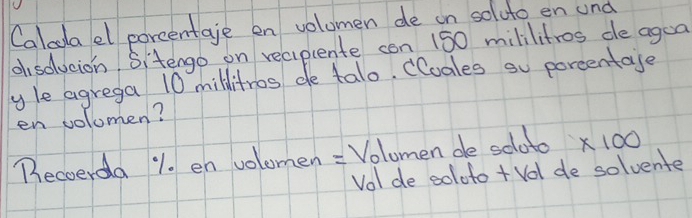 Calcula el porcentaje en volumen de un soluto en una
disolución. Si tengo un recipiente con 150 mililitros de agua
y le agrega 10 mililitros de talo. ¿Cuales su porcentaje
en volumen?
Recuerda % en volumen = Volumen de soluto x 100
Vol de soluto + Vol de solvente